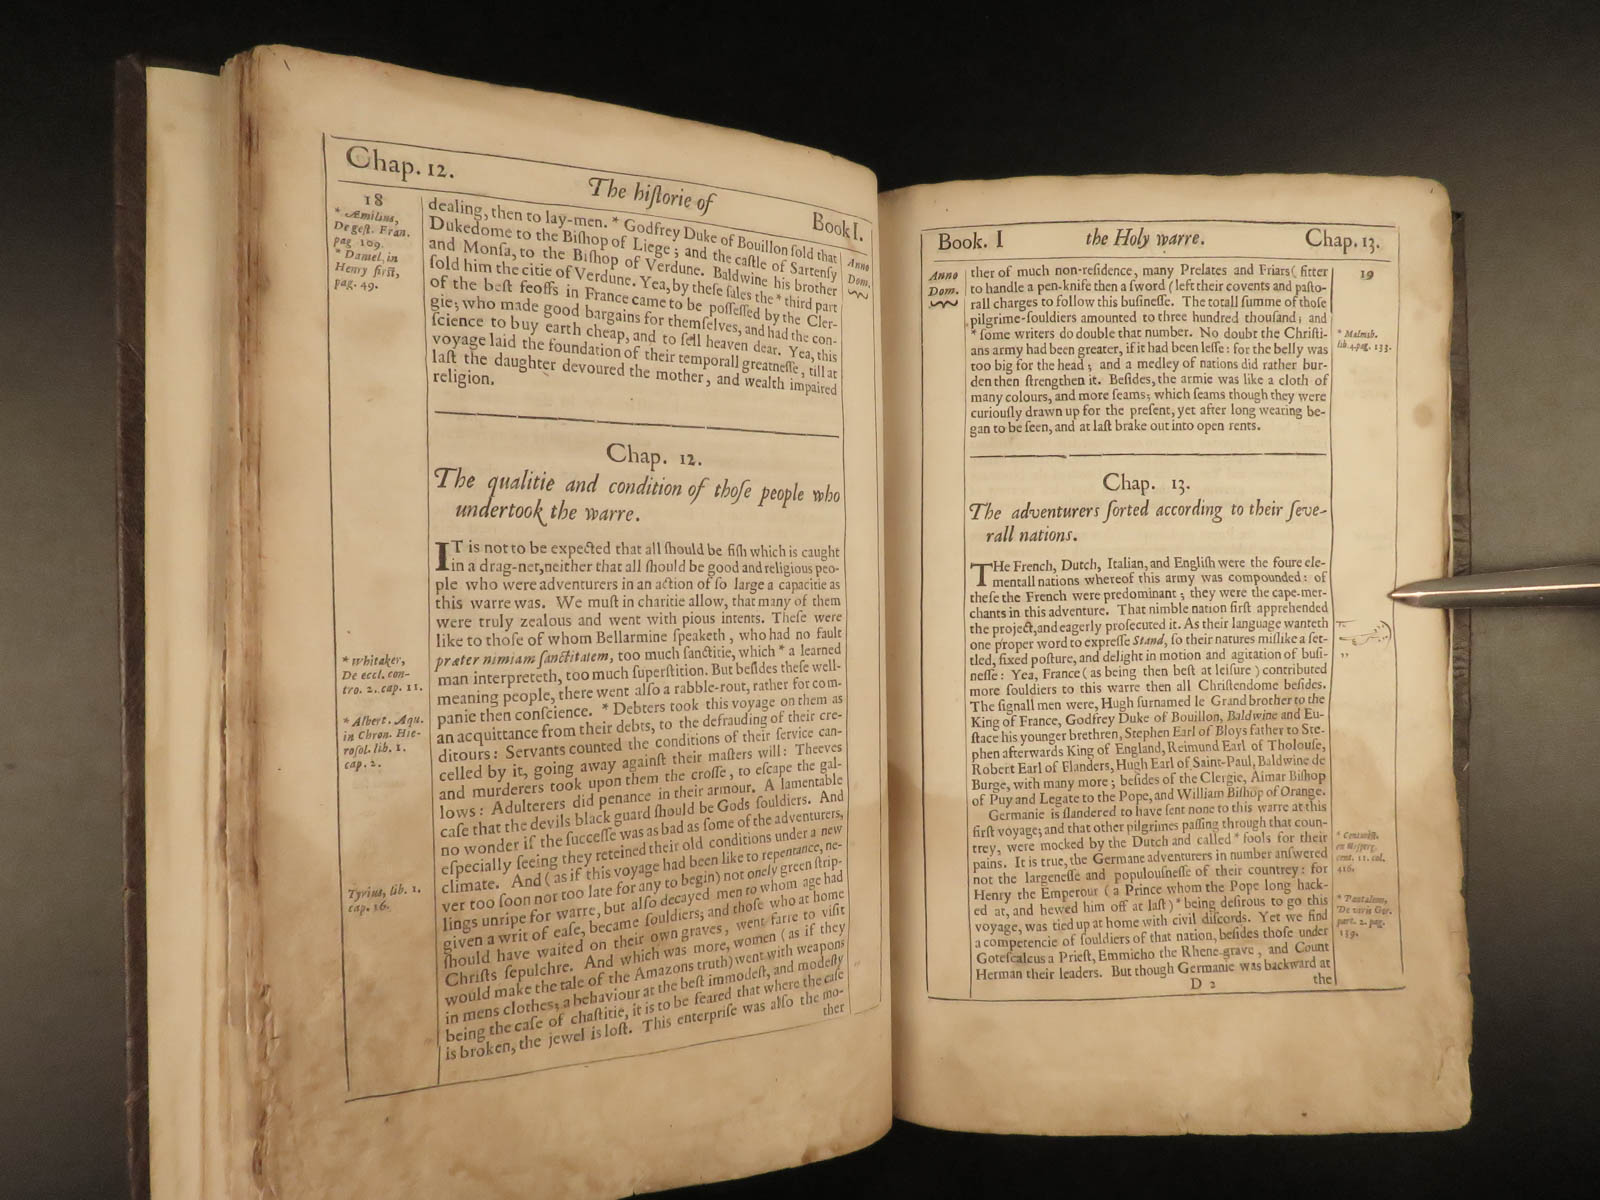 Chap. 12.
The hiſtorie of
Book I.
18
* Æmilius,
De geſt. Fran.
pag 109.
* Daniel, in
Henry firſt,
pag. 49.
Anno
Dom.
dealing, then to lay-men. * Godfrey Duke of Bouillon ſold that
Dukedome to the Biſhop of Liege; and the caſtle of Sartenſy
and Monſa, to the Biſhop of Verdune. Baldwine his brother
ſold him the citie of Verdune. Yea, by theſe ſales the * third part
of the beſt feoffs in France came to be poſſeſſed by the Cler-
gie; who made good bargains for themſelves, and had the con-
ſcience to buy earth cheap, and to ſell heaven dear. Yea, this
voyage laid the foundation of their temporall greatneſſe, till at
laſt the daughter devoured the mother, and wealth impaired
religion.
Chap. 12.
The qualitie and condition of thoſe people who
undertook the warre.
IT is not to be expected that all ſhould be fiſh which is caught
in a drag-net, neither that all ſhould be good and religious peo-
ple who were adventurers in an action of ſo large a capacitie as
this warre was. We muſt in charitie allow, that many of them
were truly zealous and went with pious intents. Theſe were
like to thoſe of whom Bellarmine ſpeaketh, who had no fault
præter nimiam ſanctitatem, too much ſanctitie, which * a learned
man interpreteth, too much ſuperſtition. But beſides theſe well-
meaning people, there went alſo a rabble-rout, rather for com-
panie then conſcience. * Debters took this voyage on them as
an acquittance from their debts, to the defrauding of their cre-
ditours: Servants counted the conditions of their ſervice can-
celled by it, going away againſt their maſters will: Theeves
and murderers took upon them the croſſe, to eſcape the gal-
lows: Adulterers did penance in their armour. A lamentable
caſe that the devils black guard ſhould be Gods ſouldiers. And
no wonder if the ſucceſſe was as bad as ſome of the adventurers,
eſpecially ſeeing they reteined their old conditions under a new
climate. And (as if this voyage had been like to repentance, ne-
ver too ſoon nor too late for any to begin) not onely green ſtrip-
lings unripe for warre, but alſo decayed men to whom age had
given a writ of eaſe, became ſouldiers; and thoſe who at home
ſhould have waited on their own graves, went farre to viſit
Chriſts ſepulchre. And which was more, women (as if they
would make the tale of the Amazons truth) went with weapons
in mens clothes; a behaviour at the beſt immodeſt, and modeſty
being the caſe of chaſtitie, it is to be feared that where the caſe
is broken, the jewel is loſt. This enterpriſe was alſo the mo-
ther
* Whitaker,
De eccl. con-
tro. 2. cap. 11.
* Albert. Aqu.
in Chron. Hie-
roſol. lib. 1.
cap. 2.
Tyrius, lib. 1.
cap. 16.
Book. I
the Holy warre.
Chap. 13.
Anno
Dom.
19
ther of much non-reſidence, many Prelates and Friars (fitter
to handle a pen-knife then a ſword) left their covents and paſto-
rall charges to follow this buſineſſe. The totall ſumme of thoſe
pilgrime-ſouldiers amounted to three hundred thouſand; and
* ſome writers do double that number. No doubt the Chriſti-
ans army had been greater, if it had been leſſe: for the belly was
too big for the head; and a medley of nations did rather bur-
den then ſtrengthen it. Beſides, the armie was like a cloth of
many colours, and more ſeams; which ſeams though they were
curiouſly drawn up for the preſent, yet after long wearing be-
gan to be ſeen, and at laſt brake out into open rents.
* Malmsb.
lib. 4. pag. 133.
Chap. 13.
The adventurers ſorted according to their ſeve-
rall nations.
THe French, Dutch, Italian, and Engliſh were the foure ele-
mentall nations whereof this army was compounded: of
theſe the French were predominant; they were the cape-mer-
chants in this adventure. That nimble nation firſt apprehended
the project, and eagerly proſecuted it. As their language wanteth
one proper word to expreſſe Stand, ſo their natures miſlike a ſet-
tled, fixed poſture, and delight in motion and agitation of buſi-
neſſe: Yea, France (as being then beſt at leiſure) contributed
more ſouldiers to this warre then all Chriſtendome beſides.
The ſignall men were, Hugh ſurnamed le Grand brother to the
King of France, Godfrey Duke of Bouillon, Baldwine and Eu-
ſtace his younger brethren, Stephen Earl of Bloys father to Ste-
phen afterwards King of England, Reimund Earl of Tholouſe,
Robert Earl of Flanders, Hugh Earl of Saint-Paul, Baldwine de
Burge, with many more; beſides of the Clergie, Aimar Biſhop
of Puy and Legate to the Pope, and William Biſhop of Orange.
Germanie is ſlandered to have ſent none to this warre at this
firſt voyage; and that other pilgrimes paſſing through that coun-
trey, were mocked by the Dutch and called * fools for their
pains. It is true, the Germane adventurers in number anſwered
not the largeneſſe and populouſneſſe of their countrey: for
Henry the Emperour (a Prince whom the Pope long hack-
ed at, and hewed him off at laſt) * being deſirous to go this
voyage, was tied up at home with civil diſcords. Yet we find
a competencie of ſouldiers of that nation, beſides thoſe under
Goteſcalcus a Prieſt, Emmicho the Rhene-grave, and Count
Herman their leaders. But though Germanie was backward at
D 2
the
cent. 11. col.
416.
* Pantaleon,
De viris Ger.
part. 2. pag.
139.